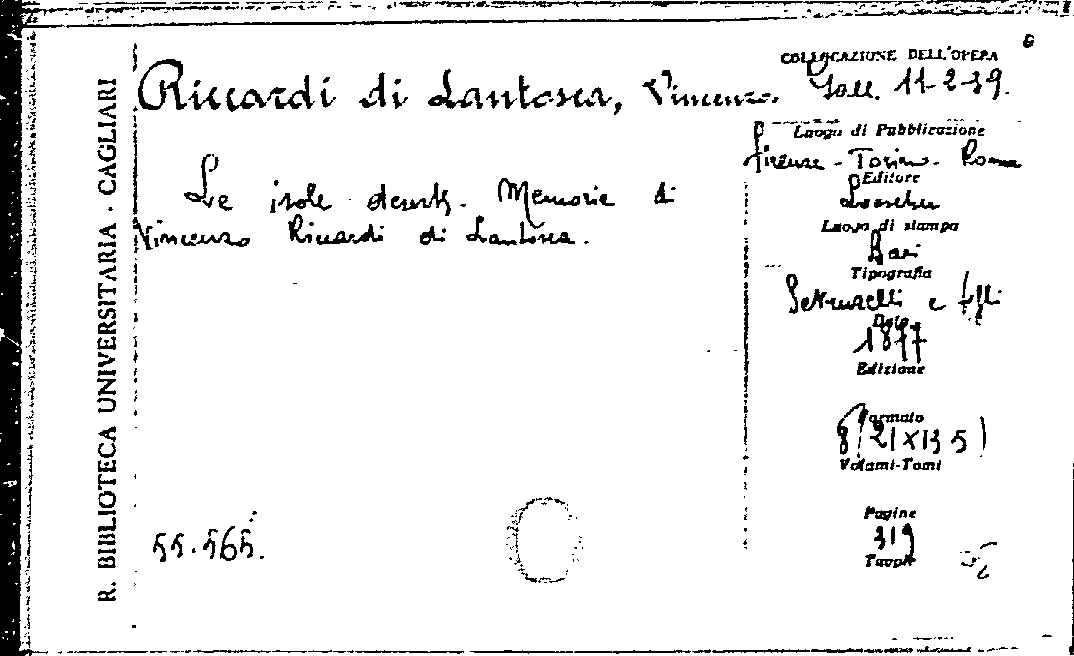 R. BIBLIOTECA UNIVERSITARIA · CAGLIARI
Riccardi di Lantosca, Vincenzo.
Le isole deserte. Memorie di
Vincenzo Riccardi di Lantosca.
55.565.
COLLOCAZIONE DELL'OPERA
Gall. 11-2-39.
Luogo di Pubblicazione
Firenze - Torino - Roma
Editore
Loescher
Luogo di stampa
Bari
Tipografia
Petruzzelli e figli
Data
1877
Edizione
Formato
8 (21×13 5)
Volumi-Tomi
Pagine
319
Tavole